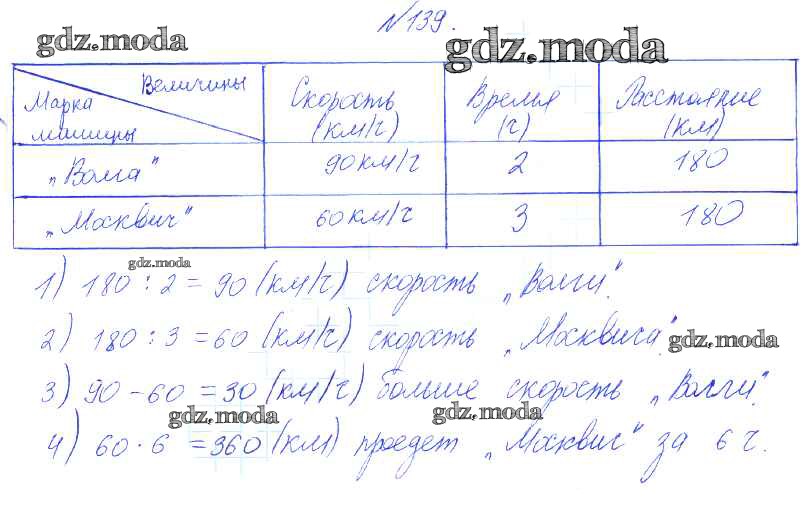 №139.
gdz.moda gdz.moda
Величины
Марка машины
Скорость (км/ч)
Время (ч)
Расстояние (км)
„Волга" 90 км/ч 2 180
„Москвич" 60 км/ч 3 180
gdz.moda
1) 180 : 2 = 90 (км/ч) скорость „Волги".
2) 180 : 3 = 60 (км/ч) скорость „Москвича". gdz.moda
3) 90 - 60 = 30 (км/ч) больше скорость „Волги".
gdz.moda gdz.moda
4) 60 · 6 = 360 (км) проедет „Москвич" за 6 ч.